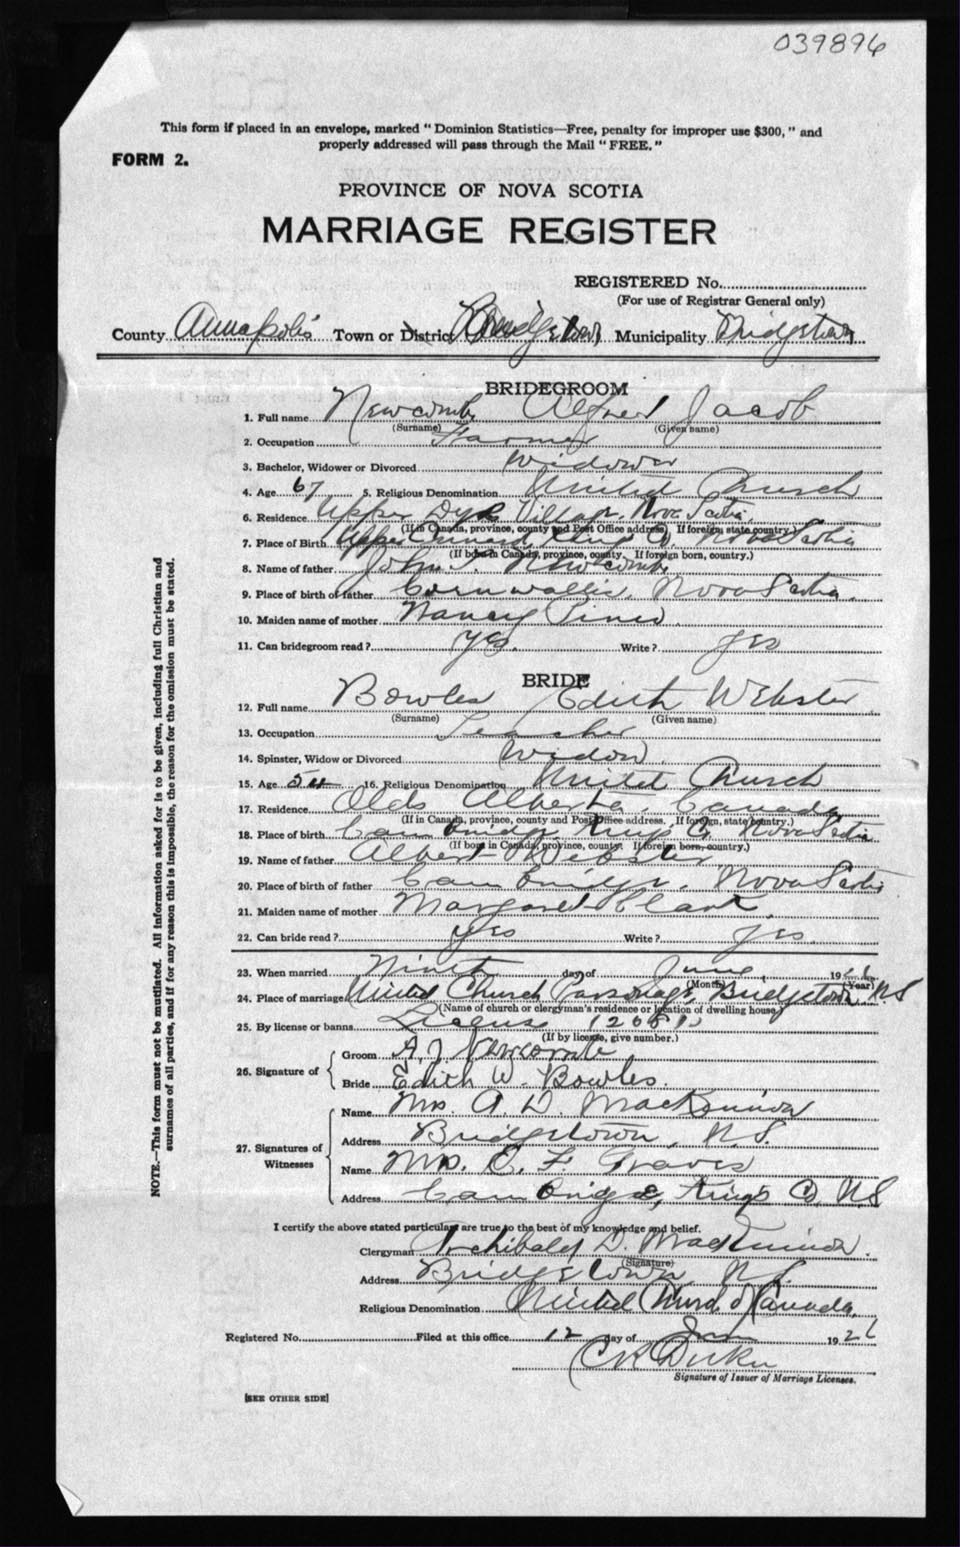 039896
This form if placed in an envelope, marked "Dominion Statistics—Free, penalty for improper use $300," and
properly addressed will pass through the Mail "FREE."
FORM 2.
PROVINCE OF NOVA SCOTIA
MARRIAGE REGISTER
REGISTERED No.
(For use of Registrar General only)
County Annapolis Town or District Bridgetown Municipality Bridgetown
BRIDEGROOM
1. Full name Newcombe Alfred Jacob
(Surname) (Given name)
2. Occupation Farmer
3. Bachelor, Widower or Divorced Widower
4. Age 67 5. Religious Denomination United Church
6. Residence Upper Dyke Village, Nova Scotia
(If in Canada, province, county and Post Office address. If foreign state, country.)
7. Place of Birth Upper Canard Kings Co Nova Scotia
(If born in Canada, province, county. If foreign born, country.)
8. Name of father John Newcombe
9. Place of birth of father Cornwallis, Nova Scotia.
10. Maiden name of mother Nancy Pineo
11. Can bridegroom read? yes. Write? yes
BRIDE
12. Full name Bowles Edith Webster
(Surname) (Given name)
13. Occupation Teacher
14. Spinster, Widow or Divorced Widow
15. Age 54 16. Religious Denomination United Church
17. Residence Olds Alberta, Canada
(If in Canada, province, county and Post Office address. If foreign, state, country.)
18. Place of birth Cambridge Kings Co Nova Scotia
(If born in Canada, province, county. If foreign born, country.)
19. Name of father Albert Webster
20. Place of birth of father Cambridge, Nova Scotia
21. Maiden name of mother Margaret Clark
22. Can bride read? Yes Write? yes
23. When married Ninth day of June, 192
(Month) (Year)
24. Place of marriage United Church Parsonage, Bridgetown NS
(Name of church or clergyman's residence or location of dwelling house)
25. By license or banns License
(If by license, give number.)
26. Signature of
Groom A. J. Newcombe
Bride Edith W. Bowles.
27. Signatures of Witnesses
Name Mrs. A. D. MacKinnon
Address Bridgetown, N.S.
Name Mrs. E. F. Graves
Address Cambridge, King's Co, N.S
I certify the above stated particulars are true to the best of my knowledge and belief.
Clergyman Archibald D. MacKinnon.
(Signature)
Address Bridgetown, N.S.
Religious Denomination United Church of Canada,
Registered No. Filed at this office 12 day of June 1926
Signature of Issuer of Marriage Licenses.
[SEE OTHER SIDE]
NOTE.—This form must not be mutilated. All information asked for is to be given, including full Christian and
surnames of all parties, and if for any reason this is impossible, the reason for the omission must be stated.